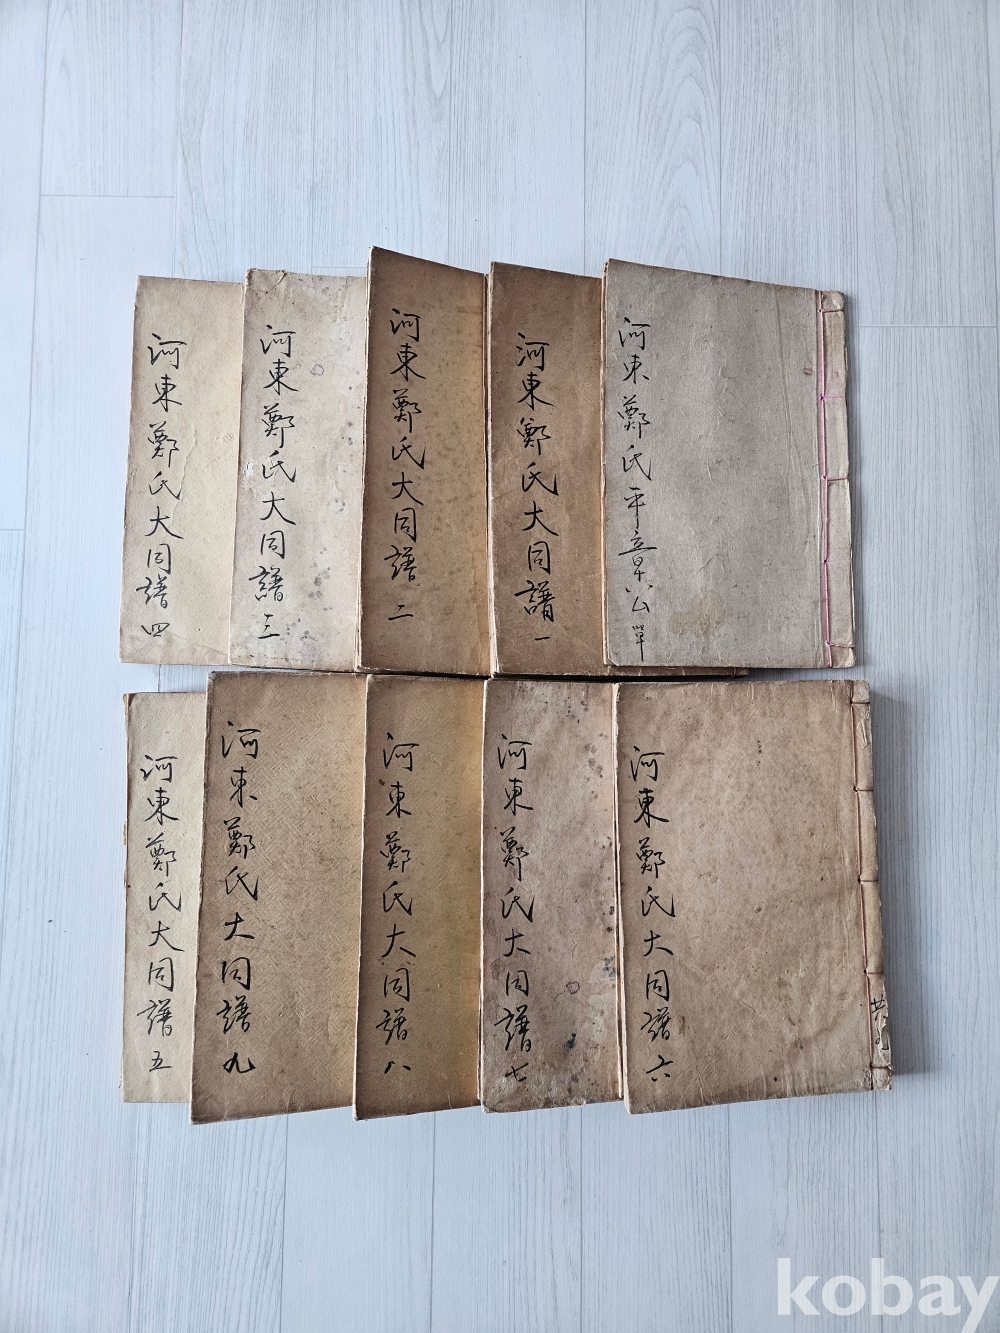 河東鄭氏平章公 單
河東鄭氏大同譜 一
河東鄭氏大同譜 二
河東鄭氏大同譜 三
河東鄭氏大同譜 四
河東鄭氏大同譜 六
共九
河東鄭氏大同譜 七
河東鄭氏大同譜 八
河東鄭氏大同譜 九
河東鄭氏大同譜 五
kobay